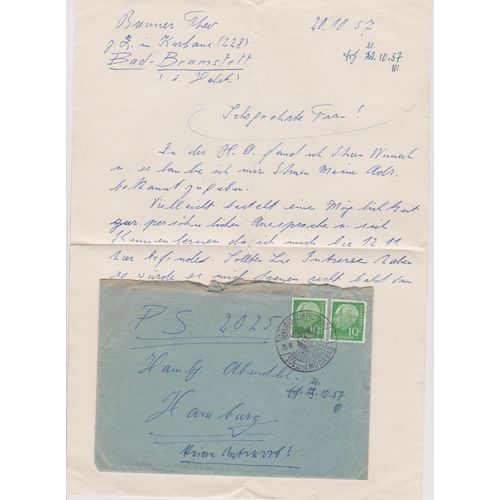 Brenner Theo
z. Z. im Kurhaus (228)
Bad-Bramstett
(i. Holst.)
20.10.57
21.
10.57
Sehrgeehrte Frau!
In der H. A. fand ich Ihren Wunsch
u. erlaube ich mir Ihnen Meine Adr.
bekannt zu geben.
Vielleicht besteht eine Möglichkeit
zur persöhnlichen Ansprache u. sich
Kennenlernen da ich mich bis 12.11.
hier befinde. Sollten Sie Intresse haben
so würde es mich freuen recht bald von
PS 2025
Hambg. Abendbl.
Hamburg
Keine Antwort!
21.
10.57
10
10